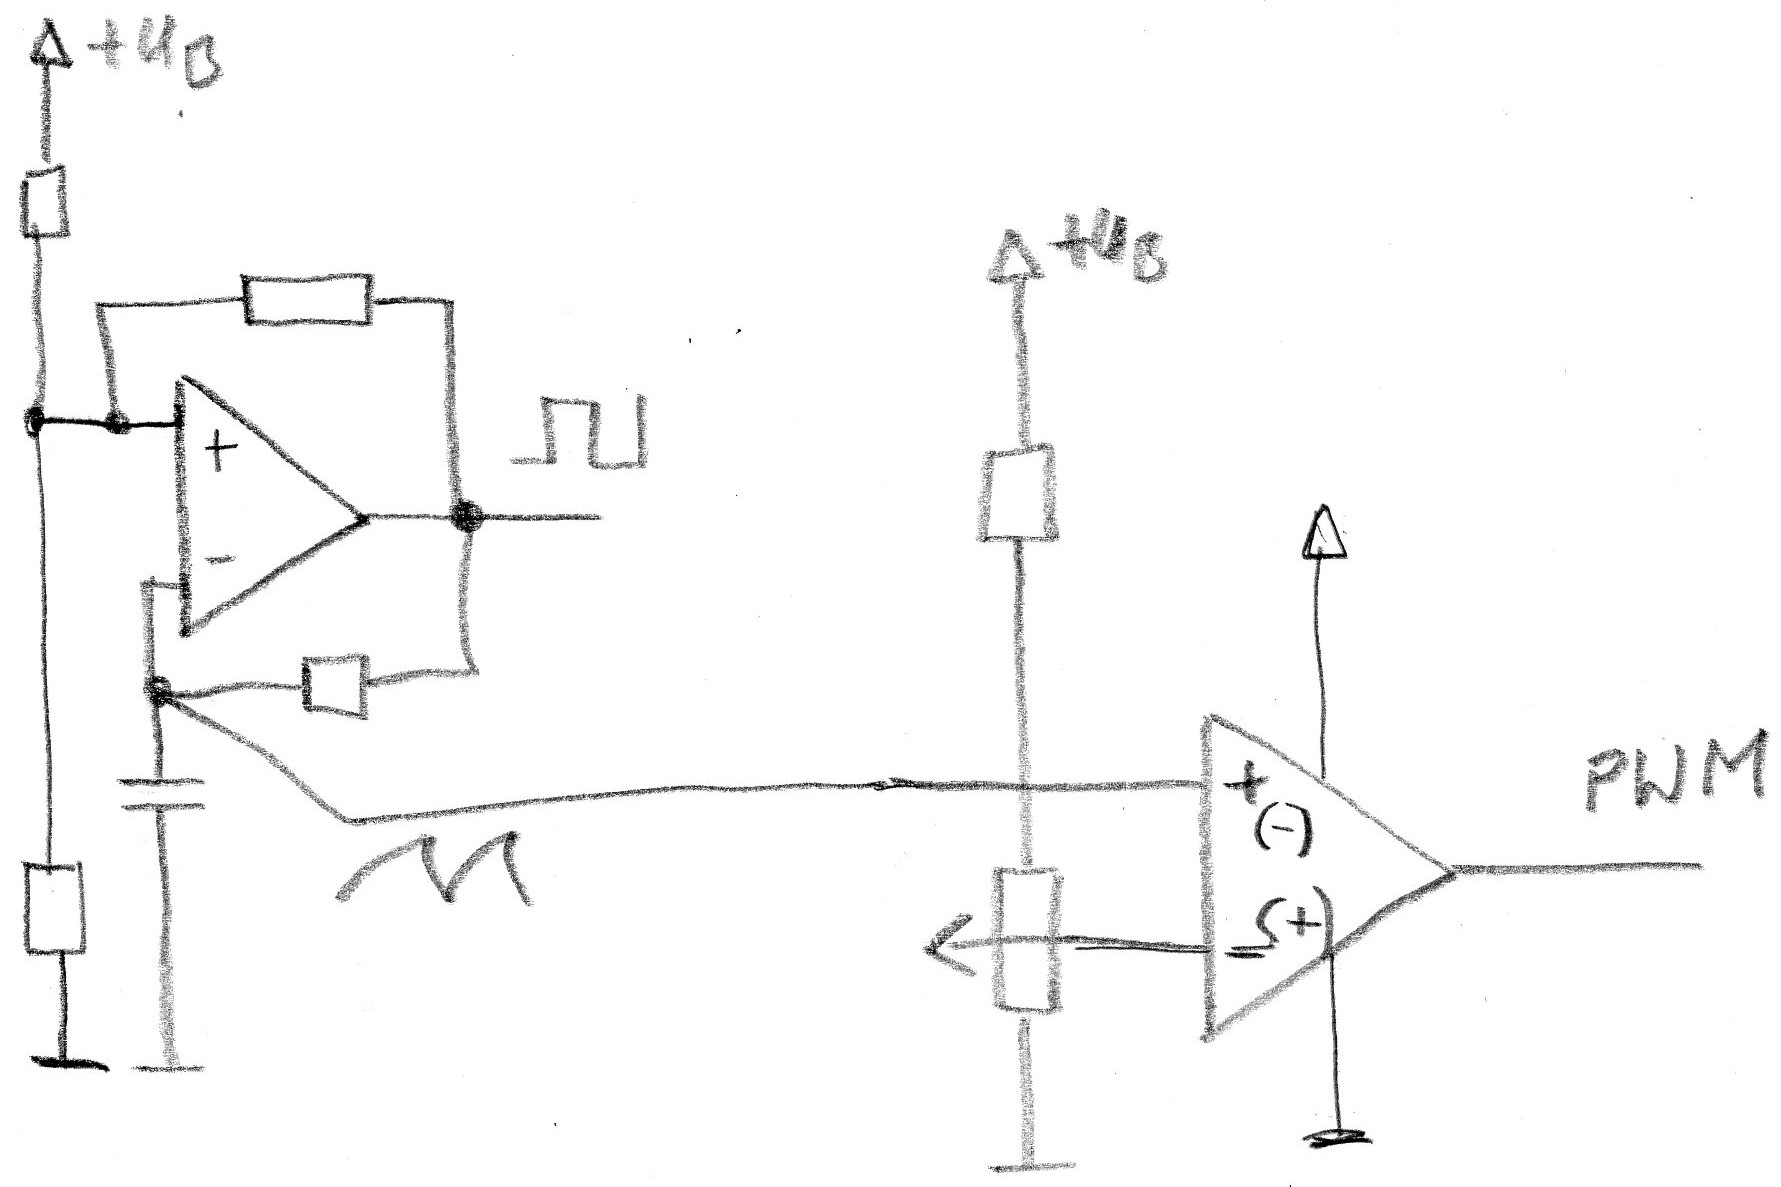 +UB
+
-
+UB
+
(-)
-(+)
PWM